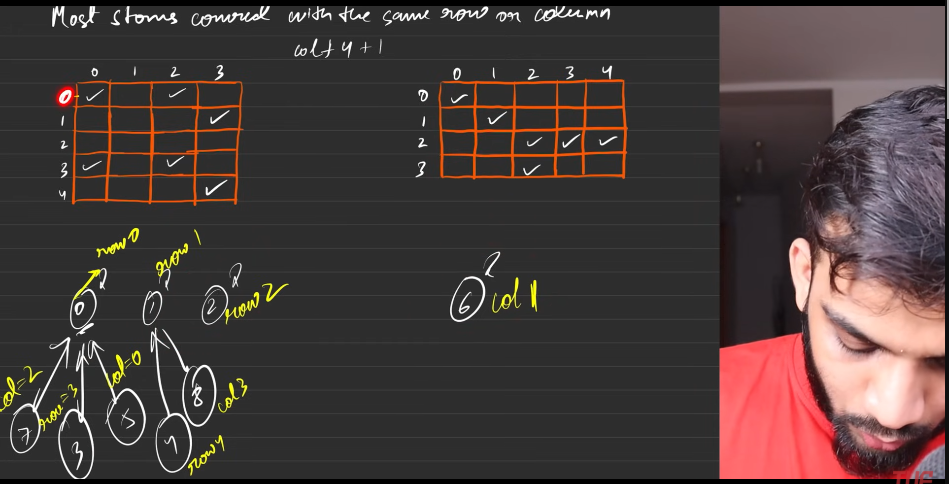 Most stones removed with the same row or column
col + 4 + 1
0 1 2 3
0
1
2
3
4
0 1 2 3 4
0
1
2
3
row 0
row 1
0 1 2 row 2
6 col 1
col=2
row=3
col=0
7 3 5 4 8
col 3
row 4
THE